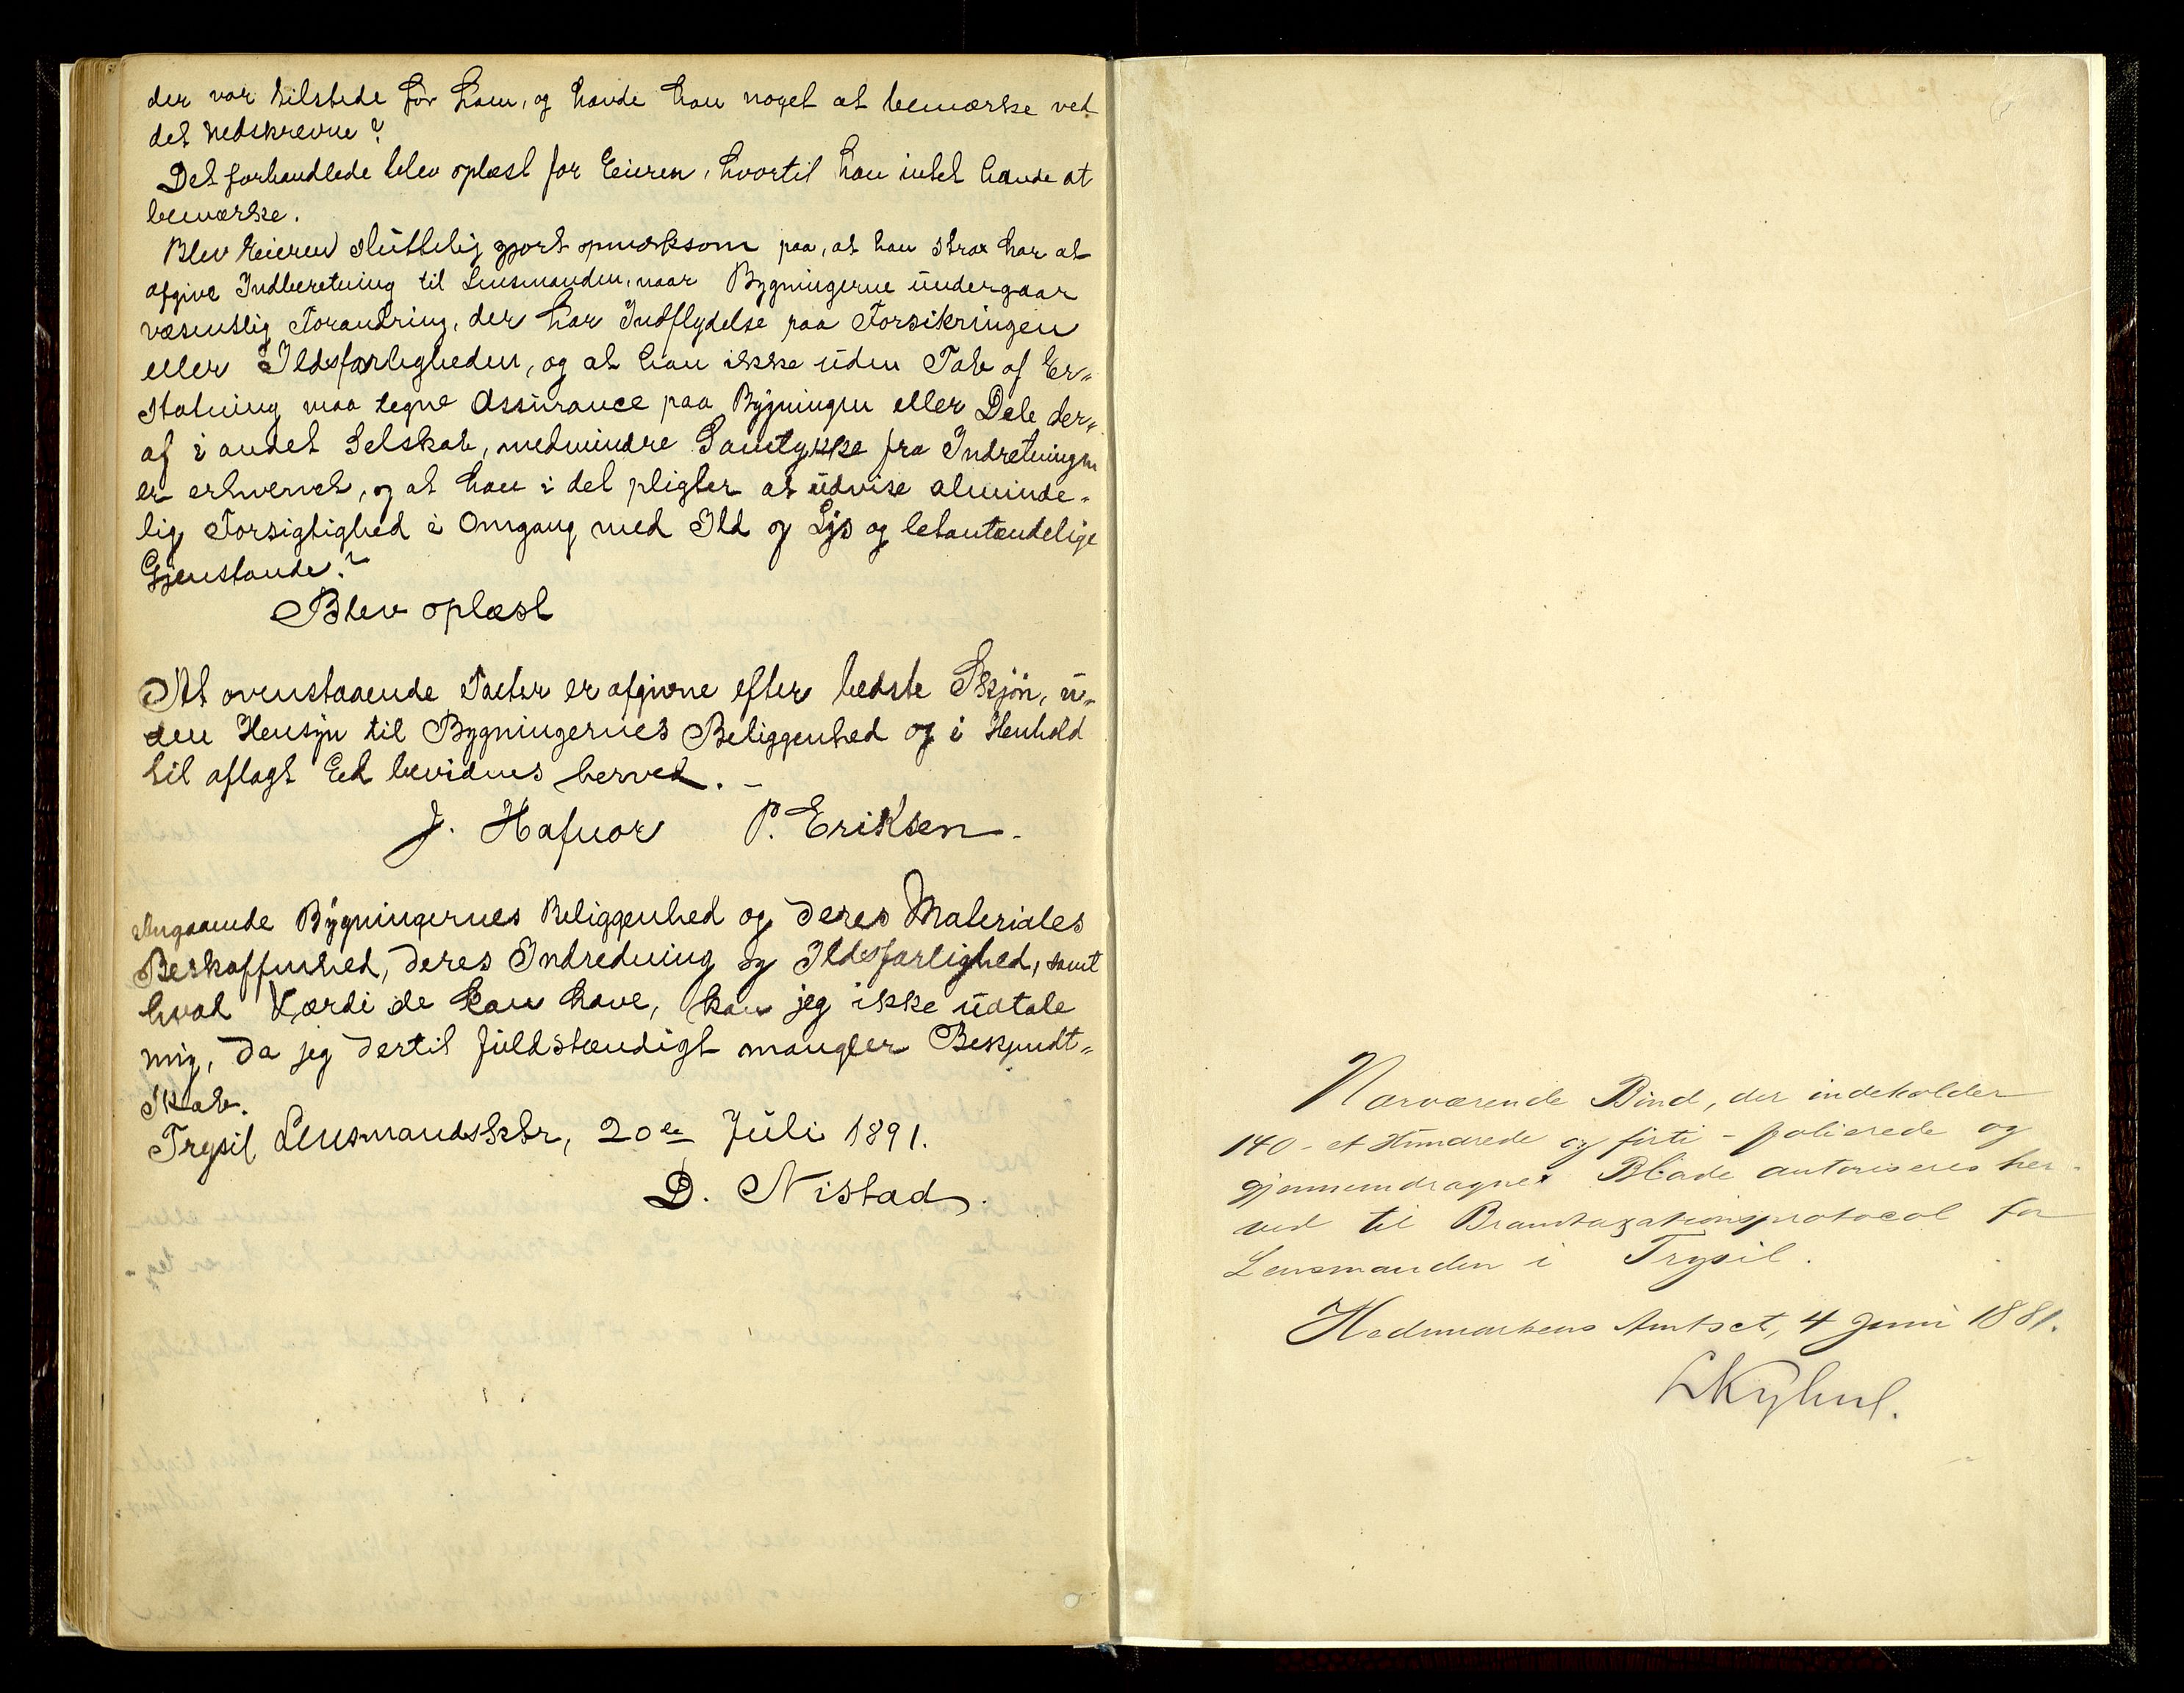 der var tilstede for ham, og havde han noget at bemærke ved
det nedskrevne?
Det forhandlede blev oplæst for Eieren, hvortil han intet havde at
bemærke.
Blev Eieren sluttelig gjort opmærksom paa, at han strax har at
afgive Indberetning til Lensmanden, naar Bygningerne undergaar
væsentlig Forandring, der har Indflydelse paa Forsikringen
eller Ildsfarligheden, og at han ikke uden Tab af Er„
statning maa tegne Assurance paa Bygningen eller Dele der„
af i andet Selskab, medmindre Samtykke fra Indretningen
er erhvervet, og at han i det pligter at udvise alminde„
lig Forsigtighed i Omgang med Ild og Lys og letantændelige
Gjenstande?
Blev oplæst
At ovenstaaende Taxter er afgivne efter bedste Skjøn, u„
den Hensyn til Bygningernes Beliggenhed og i Henhold
til aflagt Ed bevidnes herved. –
J. Hafnor P. Eriksen.
Angaaende Bygningernes Beliggenhed og deres Materiales
Beskaffenhed, deres Indredning og Ildsfarlighed, samt
hvad Værdi de kan have, kan jeg ikke udtale
mig, da jeg dertil fuldstændigt mangler Bekjendt„
skab.
Trysil Lensmandsktr, 20de Juli 1891.
D. Nistad.
Nærværende Bind, der indeholder
140 - et Hundrede og firti - folierede og
gjennemdragne Blade autoriseres her-
ved til Brandtaxationsprotocol for
Lensmanden i Trysil.
Hedemarkens Amtsct, 4 Juni 1881.